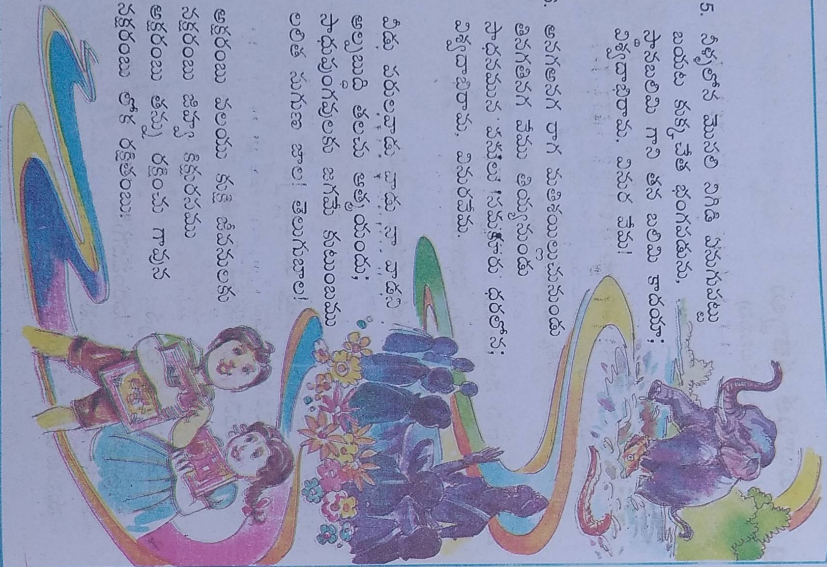 5. నీళ్ళలోన మొసలి నిగిడి ఏనుగుపట్టు
బయట కుక్కచేత భంగపడును,
స్థానబలిమి గాని తన బలిమి కాదయా;
విశ్వదాభిరామ, వినుర వేమ!
అనగఅనగ రాగ మతిశయిల్లుచునుండు
తినగతినగ వేము తియ్యనుండు
సాధనమున పనులు సమకూరు ధరలోన;
విశ్వదాభిరామ, వినురవేమ.
వీడు పరులవాడు వాడు నా వాడని
అల్పబుద్ధి తలచు ఆత్మయందు;
సాధుపుంగవులకు జగమే కుటుంబము
లలిత సుగుణ జాల! తెలుగుబాల!
అక్షరంబు వలయు కుక్షి జీవనులకు
నక్షరంబు జిహ్వా కిక్షురసము
అక్షరంబు తన్ను రక్షించు గావున
నక్షరంబు లోక రక్షితంబు.